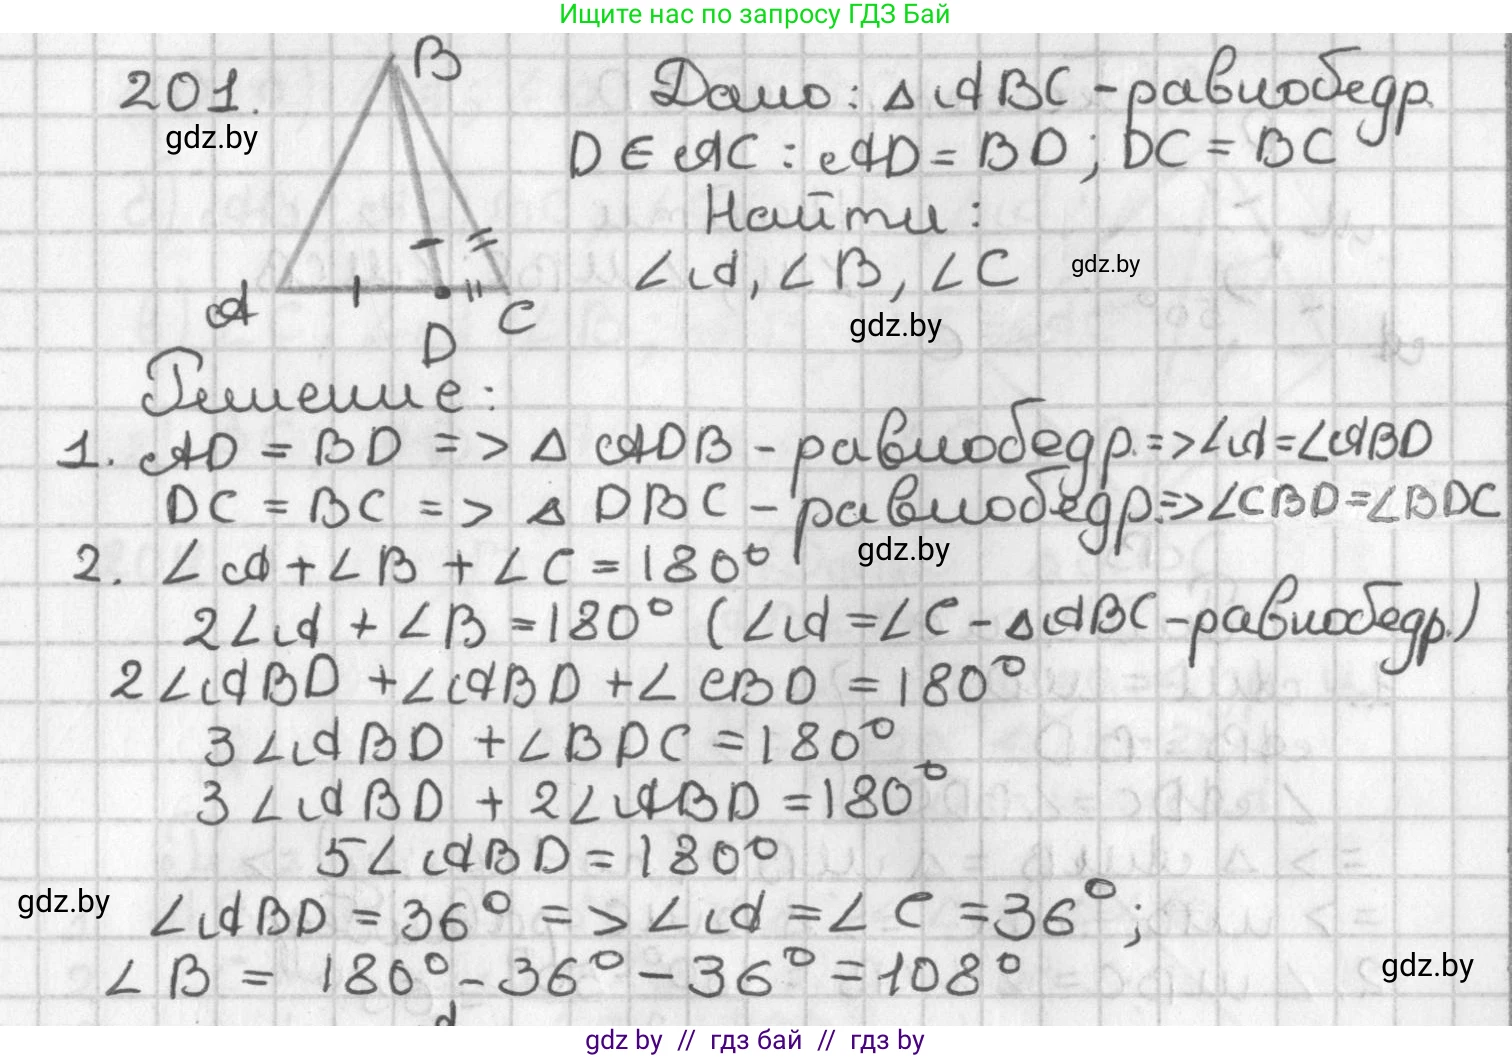 Ищите нас по запросу ГДЗ Бай
201.
gdz.by
B
A
D
C
Дано: △ABC - равнобедр.
D ∈ AC : AD = BD ; DC = BC
Найти:
∠A, ∠B, ∠C
gdz.by
gdz.by
Решение:
1. AD = BD => △ ADB - равнобедр. => ∠A = ∠ABD
DC = BC => △ DBC - равнобедр. => ∠CBD = ∠BDC
gdz.by
2. ∠A + ∠B + ∠C = 180°
2∠A + ∠B = 180° (∠A = ∠C - △ABC - равнобедр.)
2∠ABD + ∠ABD + ∠CBD = 180°
3∠ABD + ∠BDC = 180°
3∠ABD + 2∠ABD = 180°
5∠ABD = 180°
gdz.by
∠ABD = 36° => ∠A = ∠C = 36°;
∠B = 180° - 36° - 36° = 108°
gdz.by
gdz by // гдз бай // гдз by